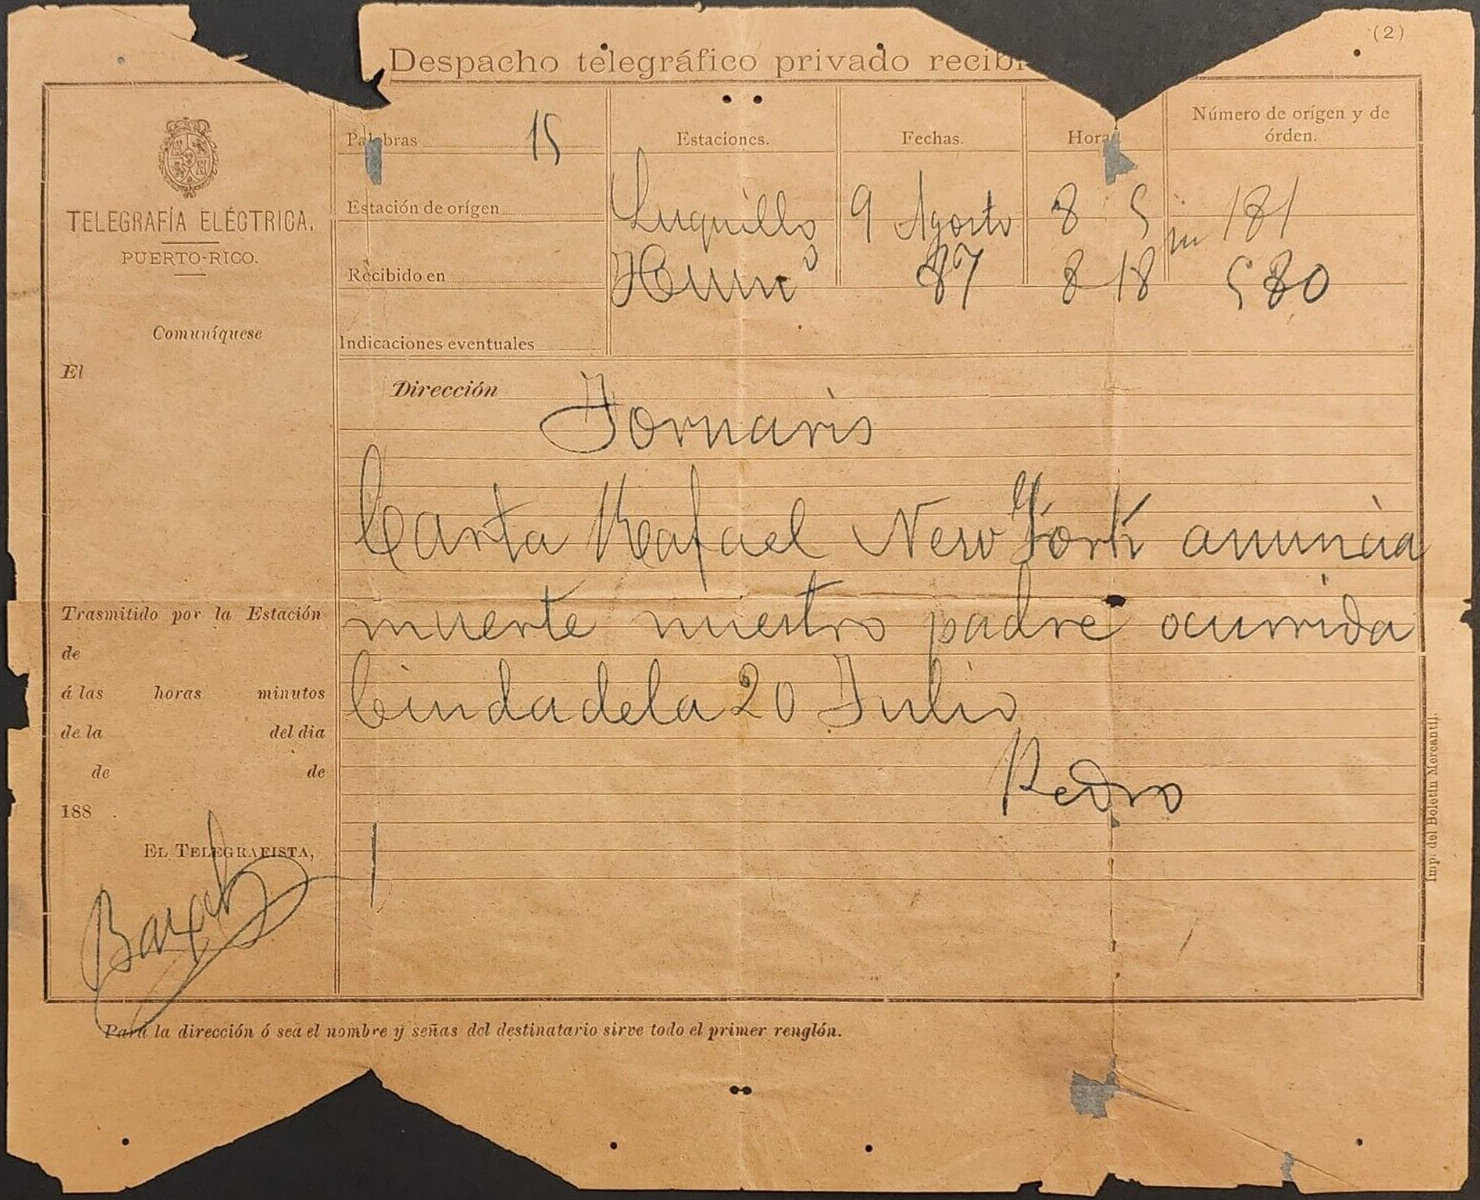 (2)
Despacho telegráfico privado recibi
Palabras 15 Estaciones. Fechas. Horas Número de orígen y de órden.
TELEGRAFÍA ELÉCTRICA.
PUERTO-RICO.
Estación de orígen Luquillo 9 Agosto 8 5 m 181
Recibido en Humo 87 8 18 580
Comuníquese
Indicaciones eventuales
El
Dirección
Fornaris
Carta Rafael New York anuncia
muerte nuestro padre ocurrida
Ciudadela 20 Julio
Pedro
Trasmitido por la Estación
de
á las horas minutos
de la del dia
de de
188 .
EL TELEGRAFISTA,
Imp. del Boletín Mercantil.
Para la dirección ó sea el nombre y señas del destinatario sirve todo el primer renglón.